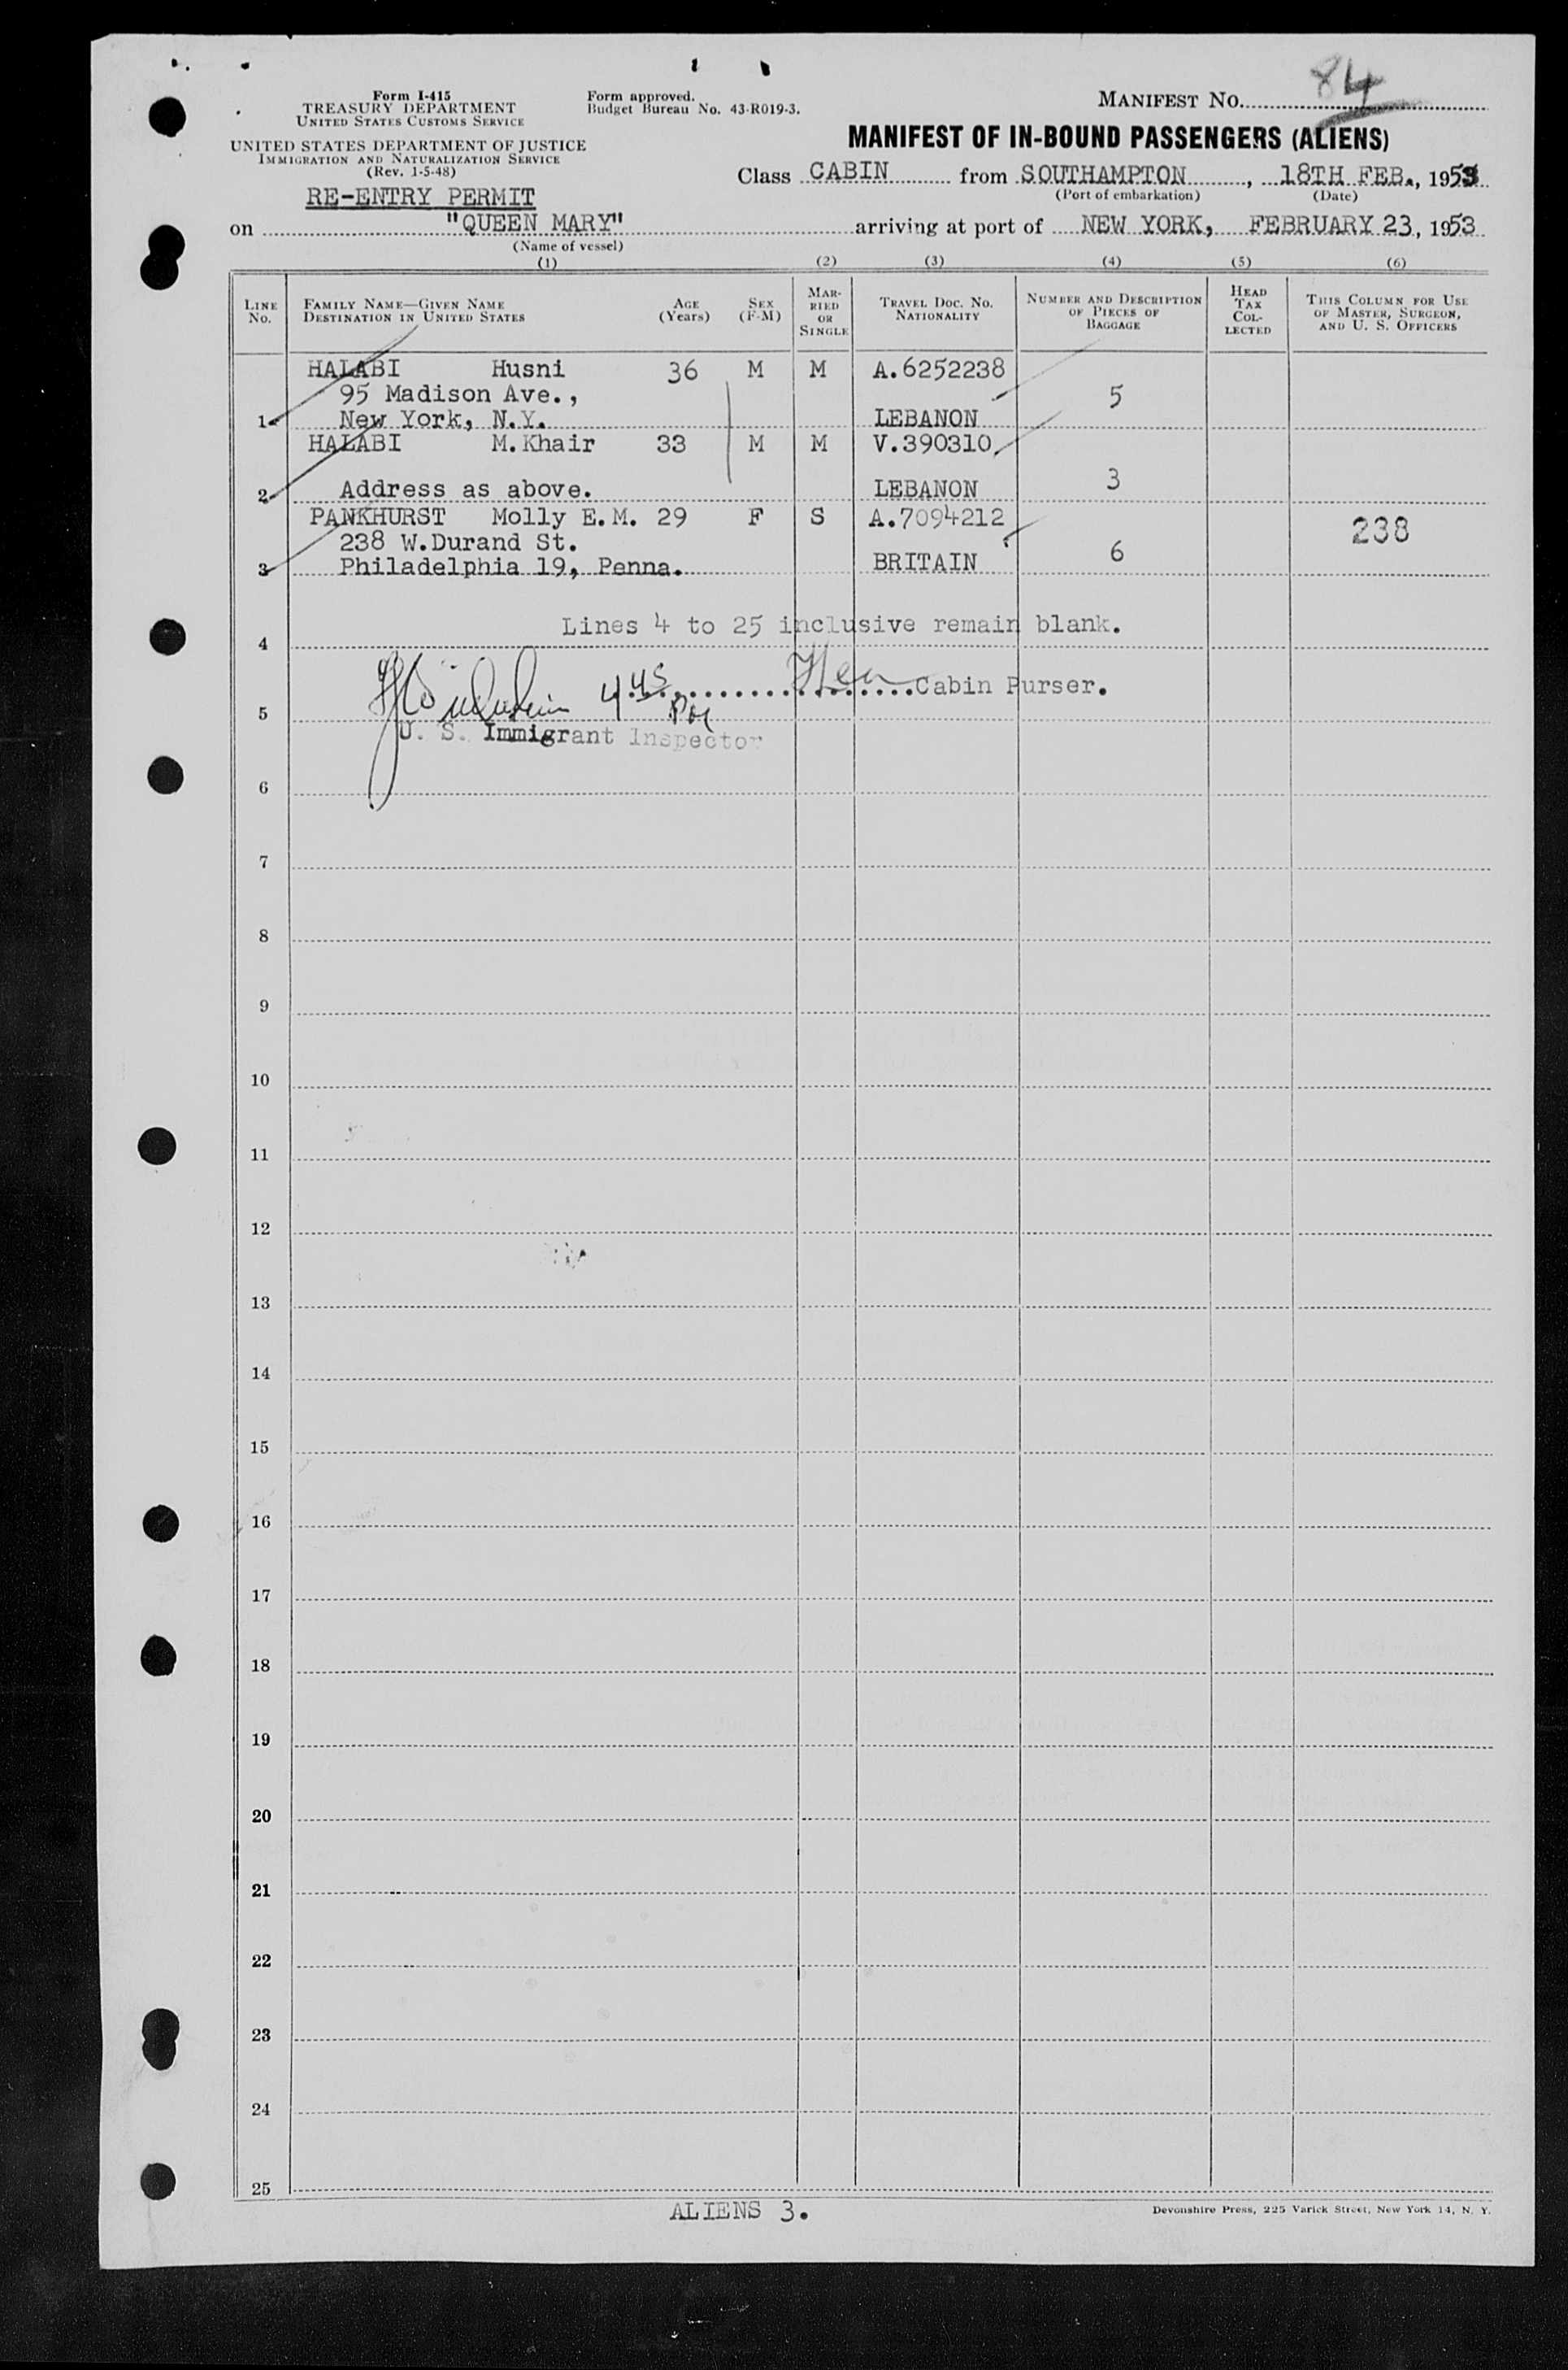 84
Form I-415
TREASURY DEPARTMENT
UNITED STATES CUSTOMS SERVICE
Form approved.
Budget Bureau No. 43-R019-3.
MANIFEST NO.
UNITED STATES DEPARTMENT OF JUSTICE
IMMIGRATION AND NATURALIZATION SERVICE
(Rev. 1-5-48)
MANIFEST OF IN-BOUND PASSENGERS (ALIENS)
RE-ENTRY PERMIT
Class CABIN from SOUTHAMPTON, 18TH FEB., 1953
(Port of embarkation) (Date)
on "QUEEN MARY" arriving at port of NEW YORK, FEBRUARY 23, 1953
(Name of vessel)
(1) (2) (3) (4) (5) (6)
LINE NO.
FAMILY NAME—GIVEN NAME
DESTINATION IN UNITED STATES
AGE (Years)
SEX (F-M)
MARRIED OR SINGLE
TRAVEL DOC. NO. NATIONALITY
NUMBER AND DESCRIPTION OF PIECES OF BAGGAGE
HEAD TAX COLLECTED
THIS COLUMN FOR USE OF MASTER, SURGEON, AND U. S. OFFICERS
HALABI Husni 36 M M A.6252238
95 Madison Ave., 5
1 New York, N.Y. LEBANON
HALABI M.Khair 33 M M V.390310
2 Address as above. LEBANON 3
PANKHURST Molly E.M. 29 F S A.7094212 238
238 W.Durand St.
3 Philadelphia 19, Penna. BRITAIN 6
Lines 4 to 25 inclusive remain blank.
4
4 45 PM Cabin Purser.
5
U. S. Immigrant Inspector
6
7
8
9
10
11
12
13
14
15
16
17
18
19
20
21
22
23
24
25
ALIENS 3.
Devonshire Press, 225 Varick Street, New York 14, N. Y.